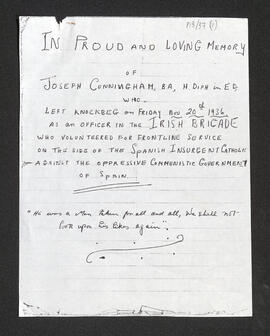 P13/37 (1)
IN PROUD AND LOVING MEMORY
OF
JOSEPH CUNNINGHAM, BA, H. DIPH IN ED,
WHO
LEFT KNOCKBEG ON FRIDAY NOV 20th 1936
AS AN OFFICER IN THE IRISH BRIGADE
WHO VOLUNTEERED FOR FRONTLINE SERVICE
ON THE SIDE OF THE SPANISH INSURGENT CATHOLIC
AGAINST THE OPPRESSIVE COMMUNISTIC GOVERNMENT
OF SPAIN.
"He was a Man taken for all and all, We shall not
look upon his likes again".